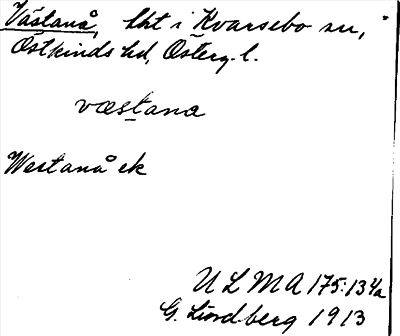 Västanå, lht i Kvarsebo sn,
Östkinds hd, Österg. l.
væstana
Westanå ek
ULMA 175:13 4a
G. Lindberg 1913